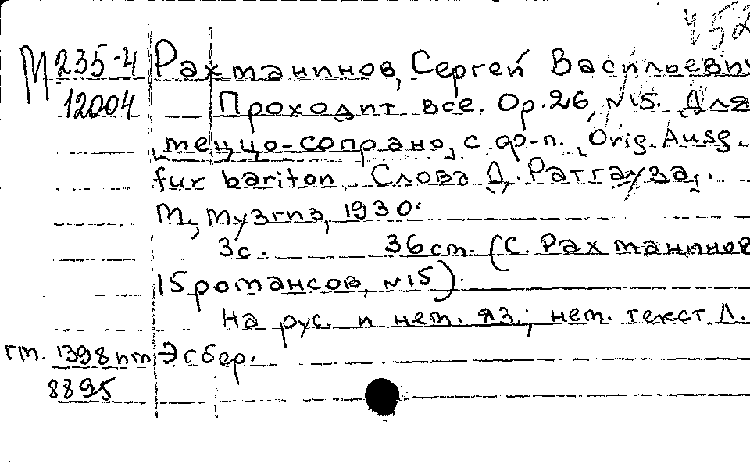 452
М 235-4 Рахманинов, Сергей Васильевич
12004 Проходит все. Op.26, №15. Для
меццо-сопрано, с ф-п., Orig. Ausg.
fur bariton. Слова Д. Ратгауза.
М., Музгиз, 1930.
3с. 36 ст. (С. Рахманинов
15 романсов, №15).
На рус. и нем. яз.; нем. текст Л.
гт. 1398пт Эсбер.
8895